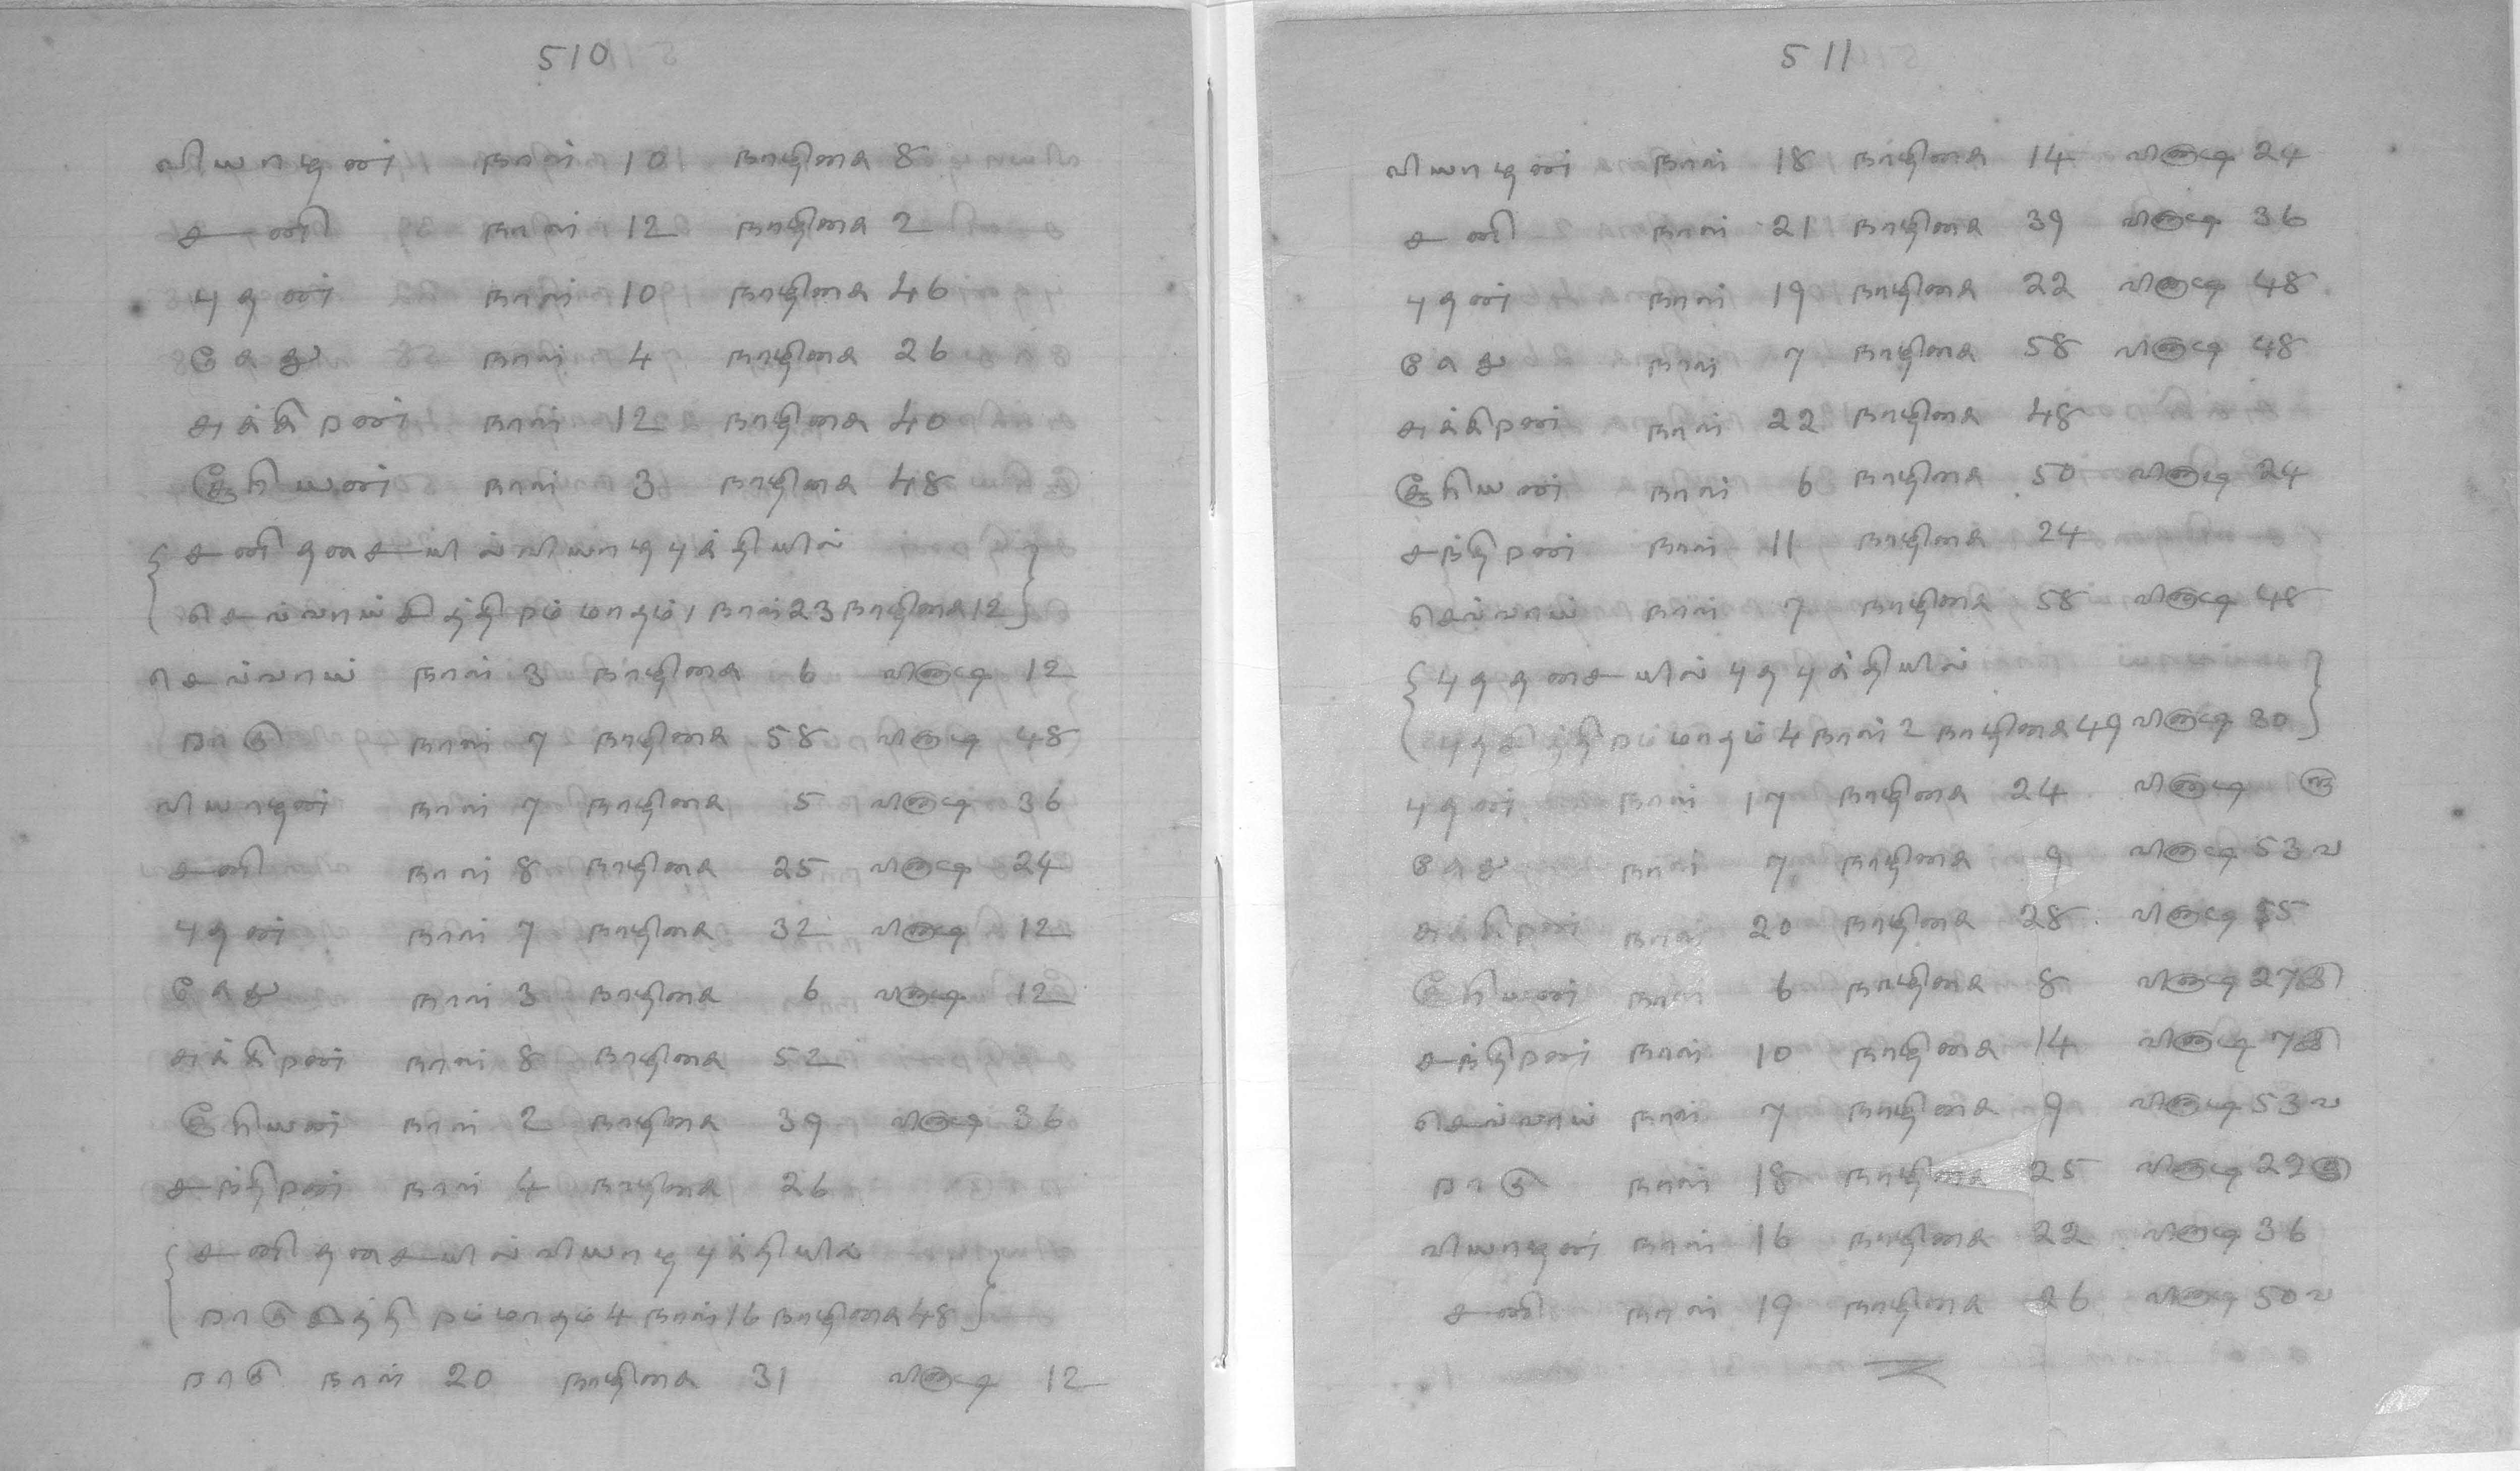 510
வியாழன் நாள் 10 நாழிகை 8
சனி நாள் 12 நாழிகை 2
புதன் நாள் 10 நாழிகை 46
கேது நாள் 4 நாழிகை 26
சுக்கிறன் நாள் 12 நாழிகை 40
சூரியன் நாள் 3 நாழிகை 48
{சனி தசையில் வியாழ புக்தியில்
செவ்வாய் சித்திறம் மாதம் 1 நாள் 23 நாழிகை 12}
செவ்வாய் நாள் 3 நாழிகை 6 விநாடி 12
றாகு நாள் 7 நாழிகை 58 விநாடி 48
வியாழன் நாள் 7 நாழிகை 5 விநாடி 36
சனி நாள் 8 நாழிகை 25 விநாடி 24
புதன் நாள் 7 நாழிகை 32 விநாடி 12
கேது நாள் 3 நாழிகை 6 விநாடி 12
சுக்கிறன் நாள் 8 நாழிகை 52
சூரியன் நாள் 2 நாழிகை 39 விநாடி 36
சந்திறன் நாள் 4 நாழிகை 26
{சனி தசையில் வியாழ புக்தியில்
றாகு சித்திறம் மாதம் 4 நாள் 16 நாழிகை 48}
றாகு நாள் 20 நாழிகை 31 விநாடி 12
511
வியாழன் நாள் 18 நாழிகை 14 விநாடி 24
சனி நாள் 21 நாழிகை 39 விநாடி 36
புதன் நாள் 19 நாழிகை 22 விநாடி 48
கேது நாள் 7 நாழிகை 58 விநாடி 48
சுக்கிறன் நாள் 22 நாழிகை 48
சூரியன் நாள் 6 நாழிகை 50 விநாடி 24
சந்திறன் நாள் 11 நாழிகை 24
செவ்வாய் நாள் 7 நாழிகை 58 விநாடி 48
{புத தசையில் புத புக்தியில்
புத சித்திறம் மாதம் 4 நாள் 2 நாழிகை 49 விநாடி 30}
புதன் நாள் 17 நாழிகை 24 விநாடி
கேது நாள் 7 நாழிகை 9 விநாடி 53 வ
சுக்கிறன் நாள் 20 நாழிகை 28 விநாடி 55
சூரியன் நாள் 6 நாழிகை 8 விநாடி 27
சந்திறன் நாள் 10 நாழிகை 14 விநாடி 7
செவ்வாய் நாள் 7 நாழிகை 9 விநாடி 53 வ
றாகு நாள் 18 நாழிகை 25 விநாடி 22
வியாழன் நாள் 16 நாழிகை 22 விநாடி 36
சனி நாள் 19 நாழிகை 26 விநாடி 50 வ